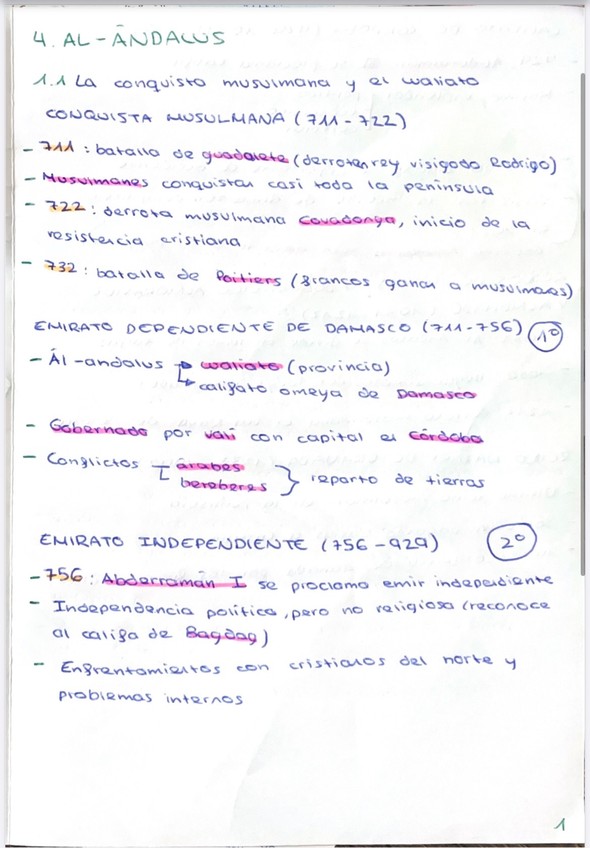 4. AL-ÁNDALUS
1.1 La conquista musulmana y el waliato
CONQUISTA MUSULMANA (711-722)
- 711: batalla de guadalete (derroten rey visigodo Rodrigo)
- Musulmanes conquistan casi toda la península
- 722: derrota musulmana Covadonga, inicio de la
resistencia cristiana
- 732: batalla de Poitiers (francos ganan a musulmanes)
EMIRATO DEPENDIENTE DE DAMASCO (711-756) 1º
- Ál-andalus → waliato (provincia)
↳ califato omeya de Damasco
- Gobernado por valí con capital en Córdoba
- Conflictos [ árabes
bereberes } reparto de tierras
EMIRATO INDEPENDIENTE (756-929) 2º
- 756: Abderramán I se proclama emir independiente
- Independencia política, pero no religiosa (reconoce
al califa de Bagdag)
- Enfrentamientos con cristianos del norte y
problemas internos
1